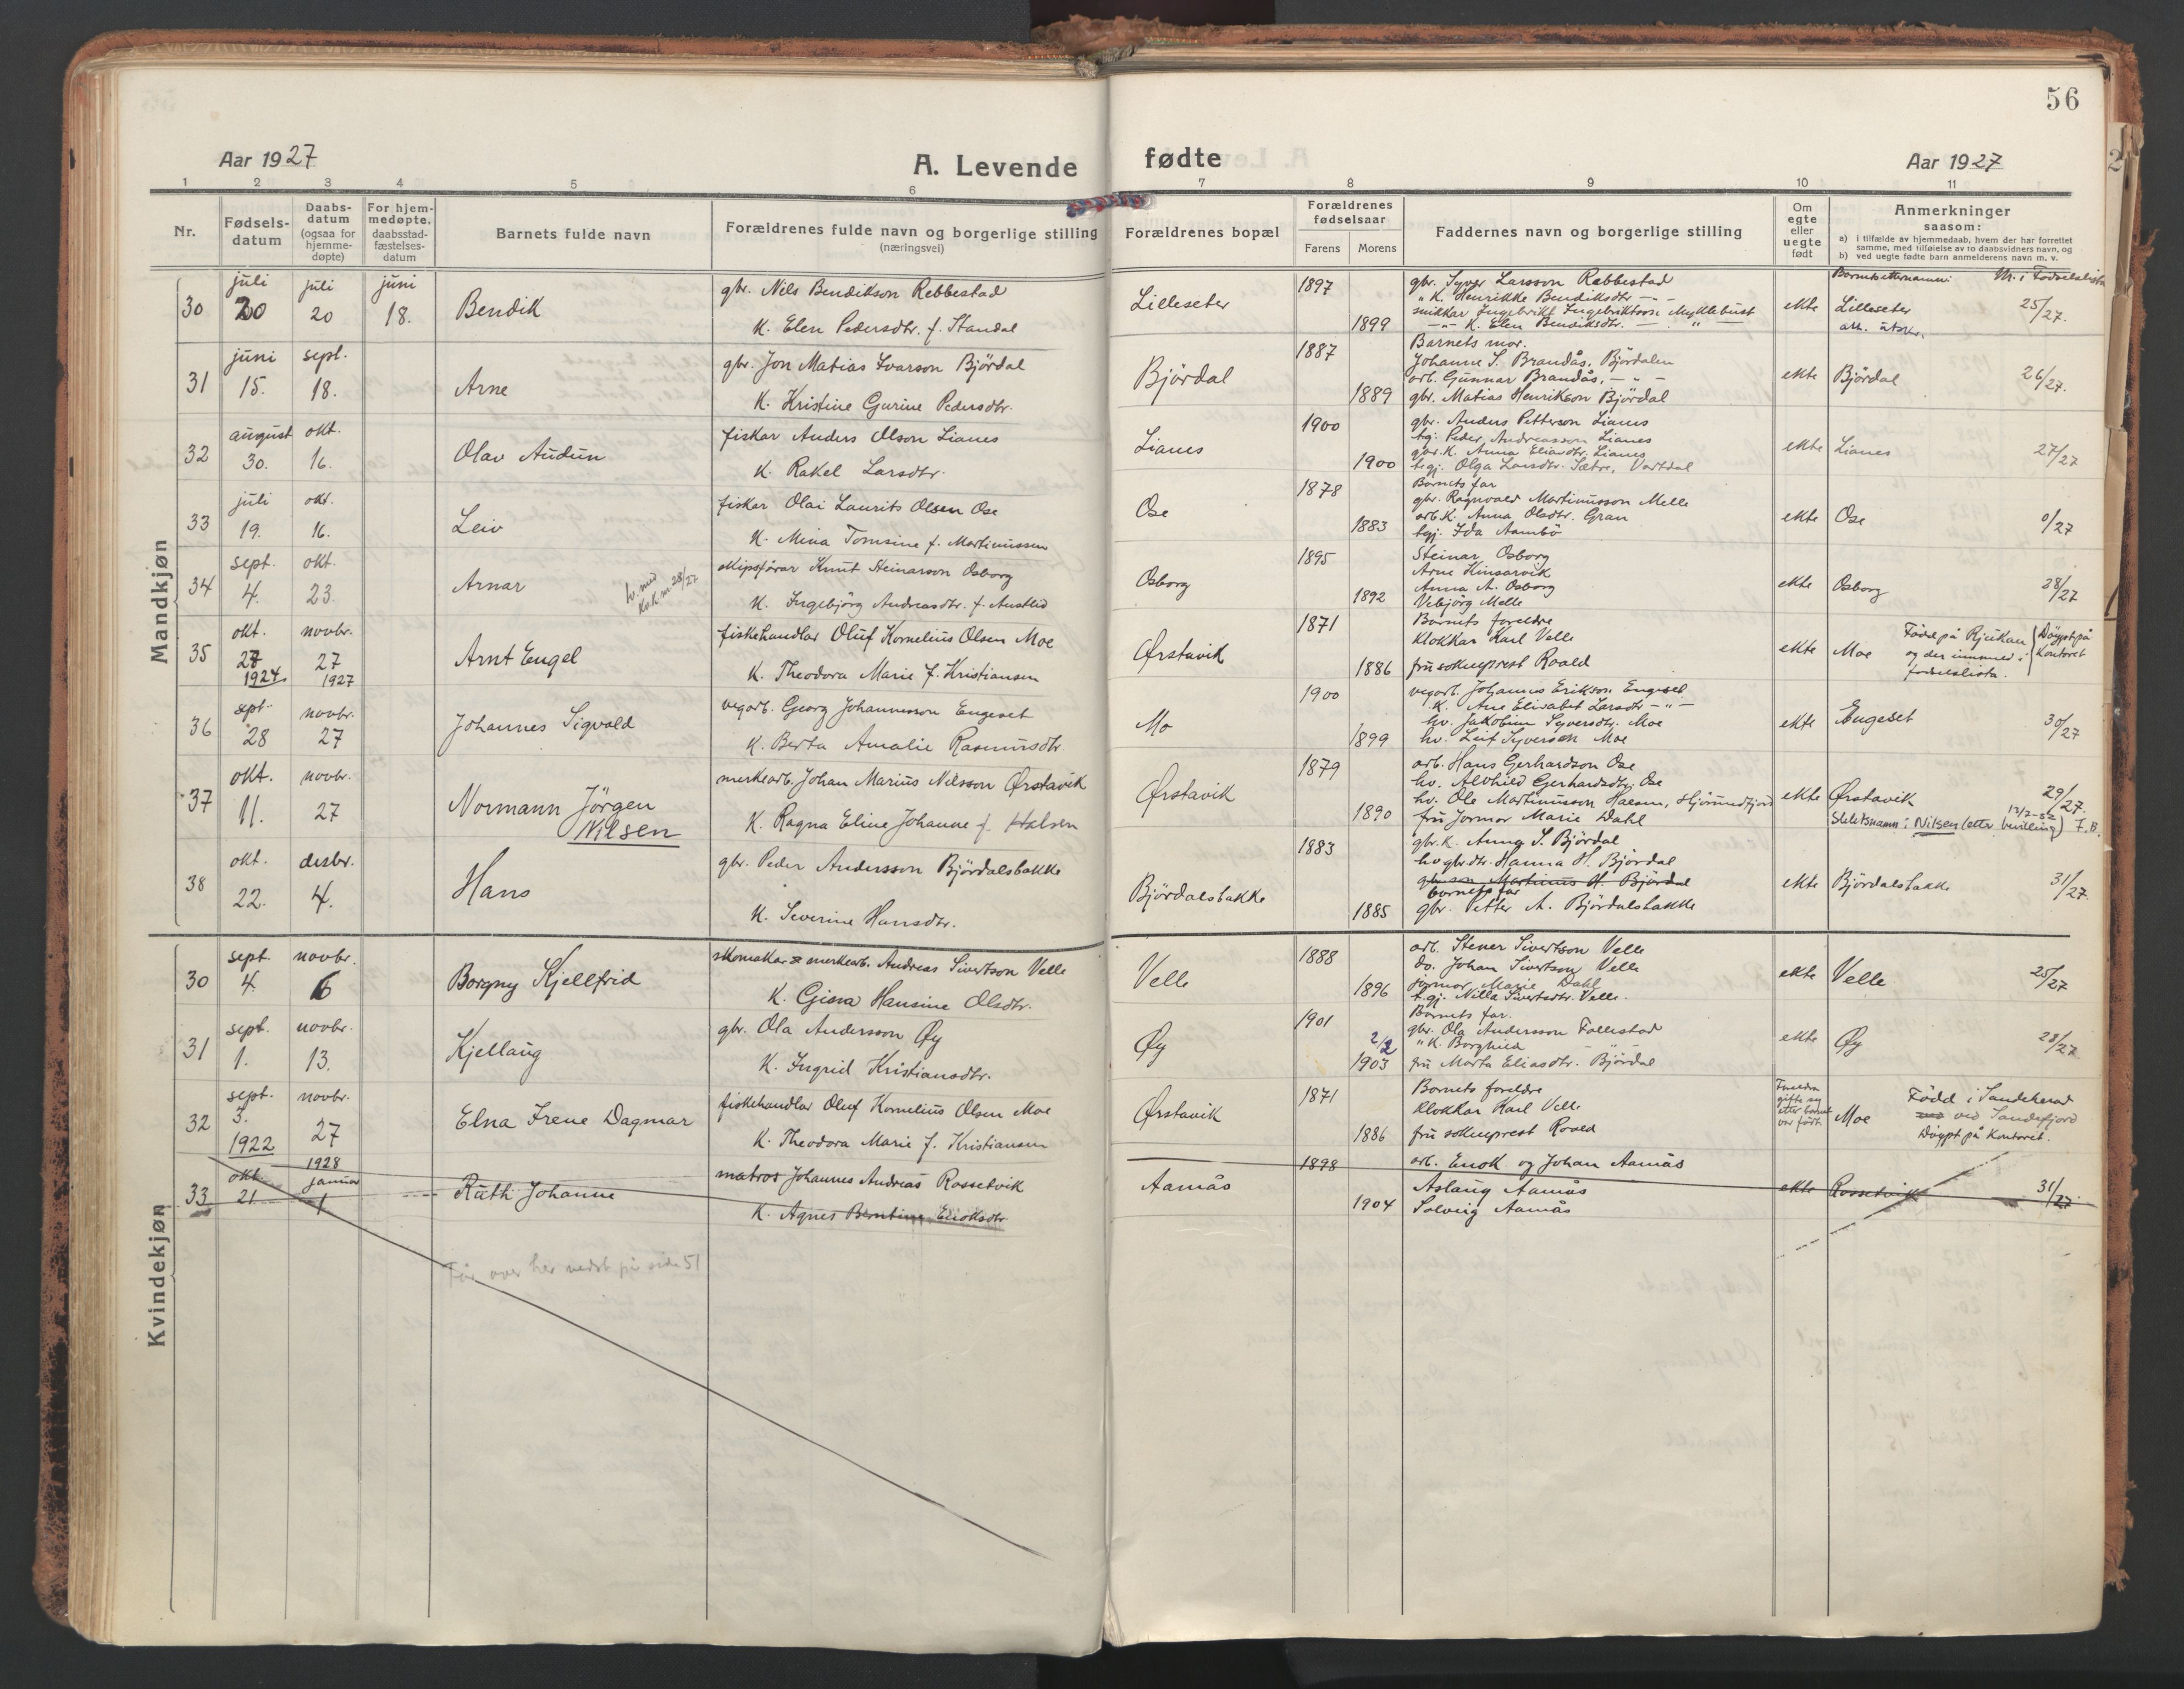 56
Aar 1927
A. Levende fødte
Aar 1927
1 2 3 4 5 6 7 8 9 10 11
Nr.
Fødsels-
datum
Daabs-
datum
(ogsaa for
hjemme-
døpte)
For hjem-
medøpte,
daabsstad-
fæstelses-
datum
Barnets fulde navn
Forældrenes fulde navn og borgerlige stilling
(næringsvei)
Forældrenes bopæl
Forældrenes
fødselsaar
Farens Morens
Faddernes navn og borgerlige stilling
Om
egte
eller
uegte
født
Anmerkninger
saasom:
a) i tilfælde av hjemmedaab, hvem der har forrettet
samme, med tilføielse av to daabsvidners navn, og
b) ved uegte fødte barn anmelderens navn m. v.
Mandkjøn
30
juli
20
juli
20
juni
18.
Bendik
gbr. Nils Bendikson Rebbestad
K. Elen Pedersdtr. f. Standal
Lilleseter
1897
1899
gbr. Syver Larsson Rebbestad
" K. Henrikke Bendiksdtr - " -
snikkar Ingebrikt Ingebriktson Myklebust
- " - K. Elen Bendiksdtr. - "
ekte
Barnets etternamn:
Nr. i Fødselslista
Lilleseter
25/27.
att. utskr.
31
juni
15.
sept.
18.
Arne
gbr. Jon Matias Ivarson Bjørdal
K. Kristine Gurine Pedersdtr.
Bjørdal
1887
1889
Barnets mor.
Johanne S. Brandås, Bjørdalen
arb. Gunnar Brandås, - " -
gbr. Matias Henrikson Bjørdal
ekte
Bjørdal
26/27.
32
august
30.
okt.
16.
Olav Audun
fiskar Anders Olson Lianes
K. Rakel Larsdtr.
Lianes
1900
1900
gbr. Anders Petterson Lianes
tg. Peder Andreasson Lianes
gbr. K. Anna Eliasdtr. Lianes
tegj. Olga Larsdtr. Sætre, Vartdal
ekte
Lianes
27/27
33
juli
19.
okt.
16.
Leiv
fiskar Olai Laurits Olsen Ose
K. Mina Tomsine f. Martinussen
Ose
1878
1883
Barnets far
gbr. Ragnvald Martinusson Melle
arb. K. Anna Olsdtr. Gran
tgj. Ida Aambø
ekte
Ose
0/27
34
sept.
4.
okt.
23.
Arnar
skipsførar Knut Steinarson Osborg
K. Ingebjørg Andreasdtr. f. Austlid
Osborg
1895
1892
Steinar Osborg
Arne Kinsarvik
Anna A. Osborg
Vebjørg Melle
ekte
Osborg
28/27
35
okt.
27
1924
novbr.
27
1927
Arnt Engel
fiskehandlar Oluf Kornelius Olsen Moe
K. Theodora Marie f. Kristiansen
Ørstavik
1871
1886
Barnets foreldre
Klokkar Karl Velle
fru sokneprest Roald
ekte
Moe
Fødd på Rjukan
og der innmeld i
fødselslista.
Døypt på
Kontoret
36
sept.
28
novbr.
27
Johannes Sigvald
vegarb. Georg Johannesson Engeset
K. Berta Amalie Rasmusdtr.
Mo
1900
1899
vegarb. Johannes Erikson Engeset
K. Ane Elisabet Larsdtr - " -
hv. Jakobine Syversdtr. Moe
hv. Leif Syversen Moe
ekte
Engeset
30/27
37
okt.
11.
novbr.
27
Normann Jørgen
Nilsen
merkearb. Johan Marius Nilsson Ørstavik
K. Ragna Eline Johanne f. Halsen
Ørstavik
1879
1890
arb. Hans Gerhardson Ose
hv. Alvhild Gerhardsdtr. Ose
hv. Ole Martinusson Halsen, Hjørundfjord
fru jormor Marie Dahl
ekte
Ørstavik
29/27.
Slektsnamn: Nilsen (etter bevilling 12/2-52) F.B.
38
okt.
22.
desbr.
4.
Hans
gbr. Peder Andersson Bjørdalsbakke
K. Severine Hansdtr.
Bjørdalsbakke
1883
1885
gbr. K. Anna S. Bjørdal
hv gbr. dtr. Hanna H. Bjørdal
gbr. son Martinus H. Bjørdal
barnets far
gbr. Petter A. Bjørdalsbakke
ekte
Bjørdalsbakke
31/27.
Kvindekjøn
30
sept.
4.
novbr.
6
Borgny Kjellfrid
skomakar & merkearb. Andreas Sivertson Velle
K. Gina Hansine Olsdtr.
Velle
1888
1896
arb. Stener Sivertson Velle
do. Johan Sivertson Velle
jormor Marie Dahl
t.gj. Nilla Sivertsdtr. Velle.
ekte
Velle
25/27
31
sept.
1.
novbr.
13.
Kjellaug
gbr. Ola Andersson Øy
K. Ingrid Kristiansdtr.
Øy
1901
2/2
1903
Barnets far.
gbr. Ola Andersson Follestad
" K. Borghild - " -
fru Marta Eliasdtr. Bjørdal
ekte
Øy
28/27
32
sept.
3.
1922
novbr.
27
Elna Irene Dagmar
fiskehandlar Oluf Kornelius Olsen Moe
K. Theodora Marie f. Kristiansen
Ørstavik
1871
1886
Barnets foreldre
Klokkar Karl Velle
fru sokneprest Roald
Foreldra
gifte seg
etter barnet
var født.
Moe
Fødd i Sandeherad
ved Sandefjord
Døypt på Kontoret.
33
okt.
21.
1928
januar
1
Ruth Johanne
matros Johannes Andreas Rossetvik
K. Agnes Bentine Enoksdtr.
Aamås
1898
1904
arb. Enok og Johan Aamås
Aslaug Aamås
Solveig Aamås
ekte
Rossetvik
31/27
før over her nedst på side 51